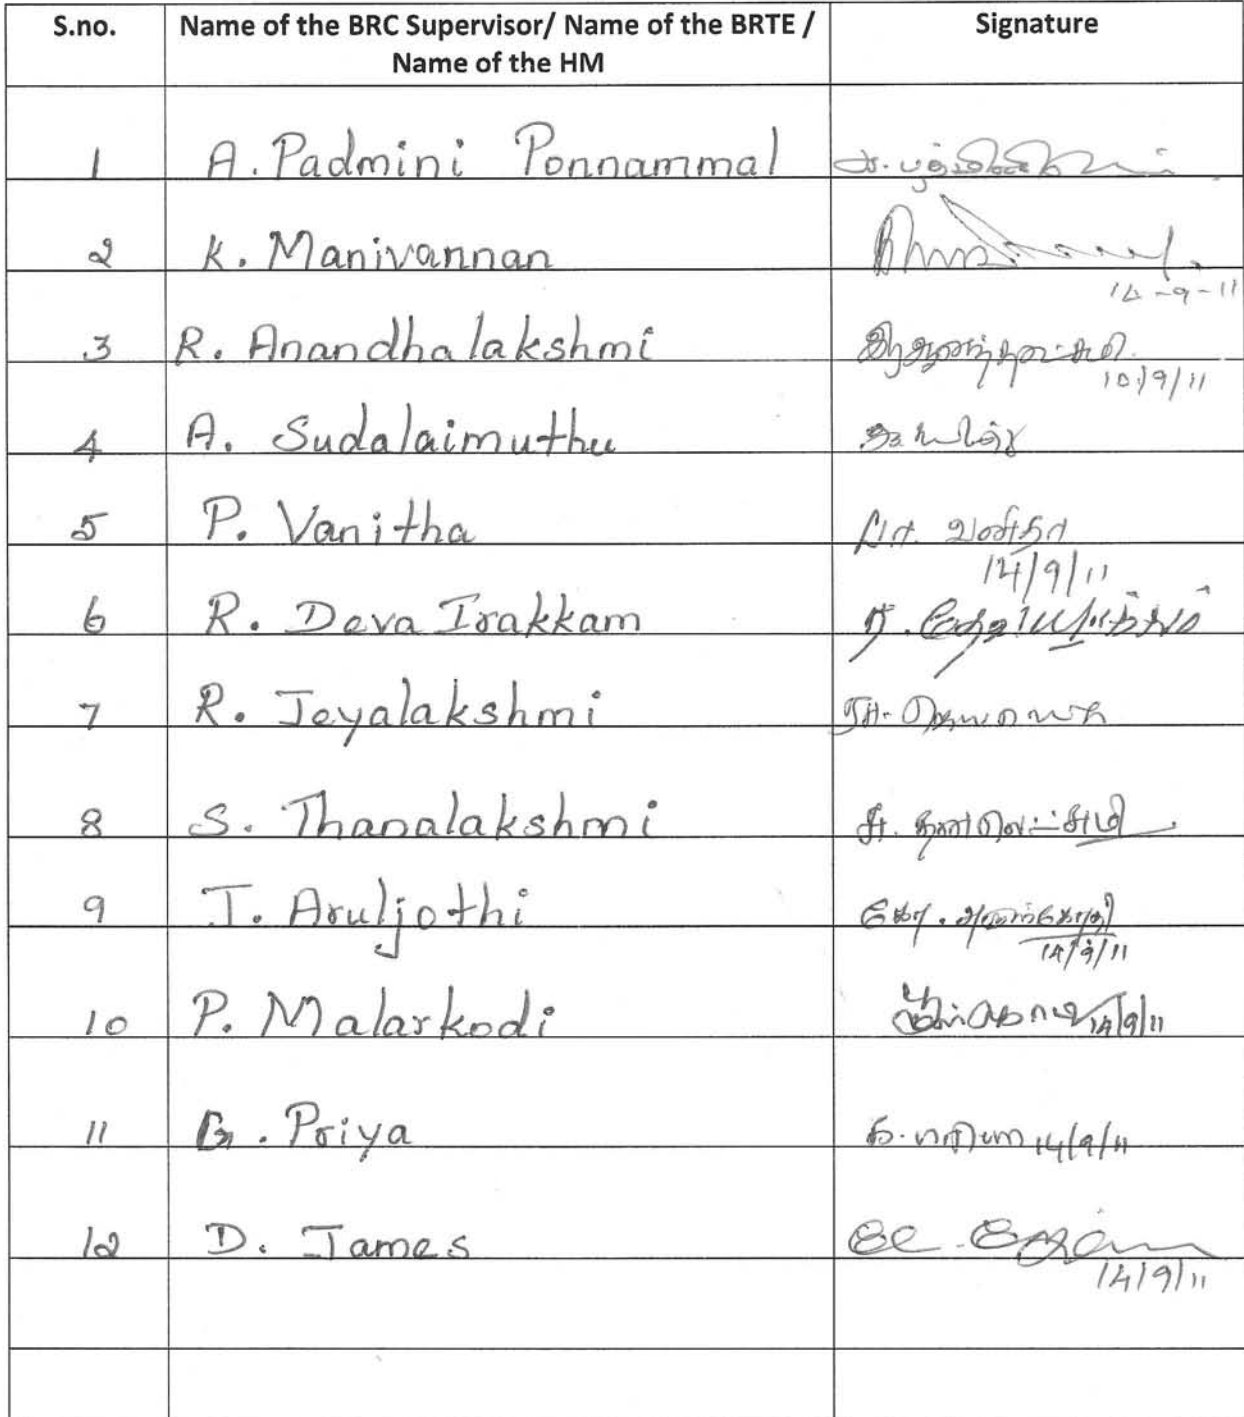 S.no. Name of the BRC Supervisor/ Name of the BRTE / Signature
Name of the HM
1 A. Padmini Ponnammal
2 K. Manivannan
14-9-11
3 R. Anandhalakshmi
10/9/11
4 A. Sudalaimuthu
5 P. Vanitha பா. வனிதா
14/9/11
6 R. Deva Irakkam
7 R. Jeyalakshmi
8 S. Thanalakshmi சு. தனலெட்சுமி
9 J. Aruljothi
14/9/11
10 P. Malarkodi 14/9/11
11 G. Priya க. பிரியா 14/9/11
12 D. James
14/9/11